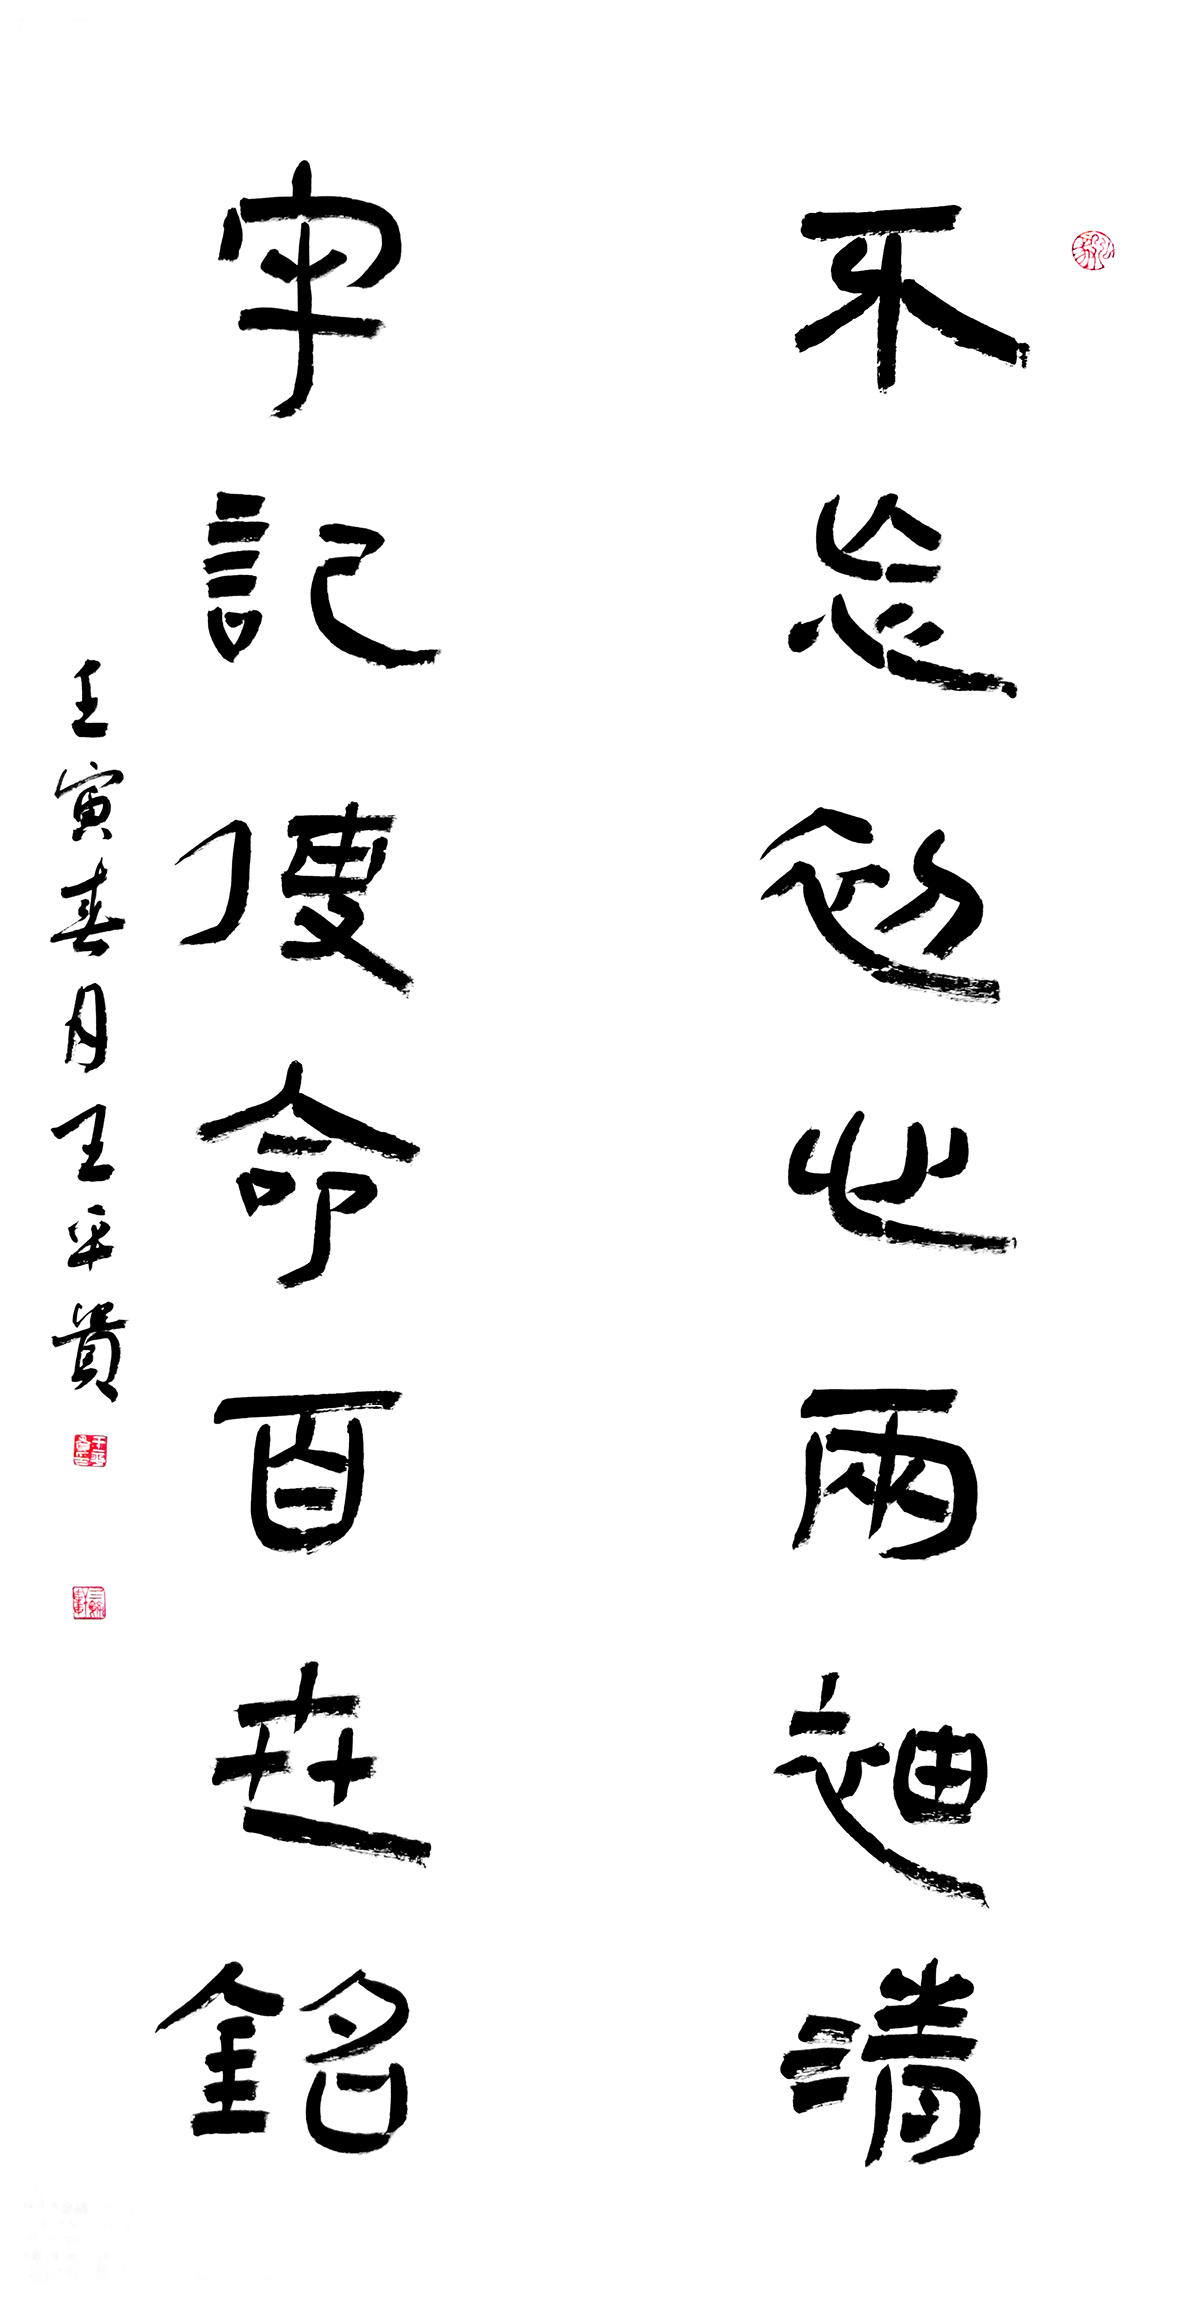 不忘初心兩袖清
牢記使命百世銘
壬寅春月王平貴